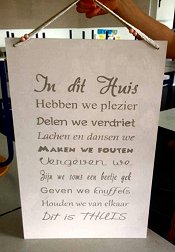 In dit Huis
Hebben we plezier
Delen we verdriet
Lachen en dansen we
MAKEN WE FOUTEN
Vergeven we
Zijn we soms een beetje gek
Geven we knuffels
Houden we van elkaar
Dit is THUIS